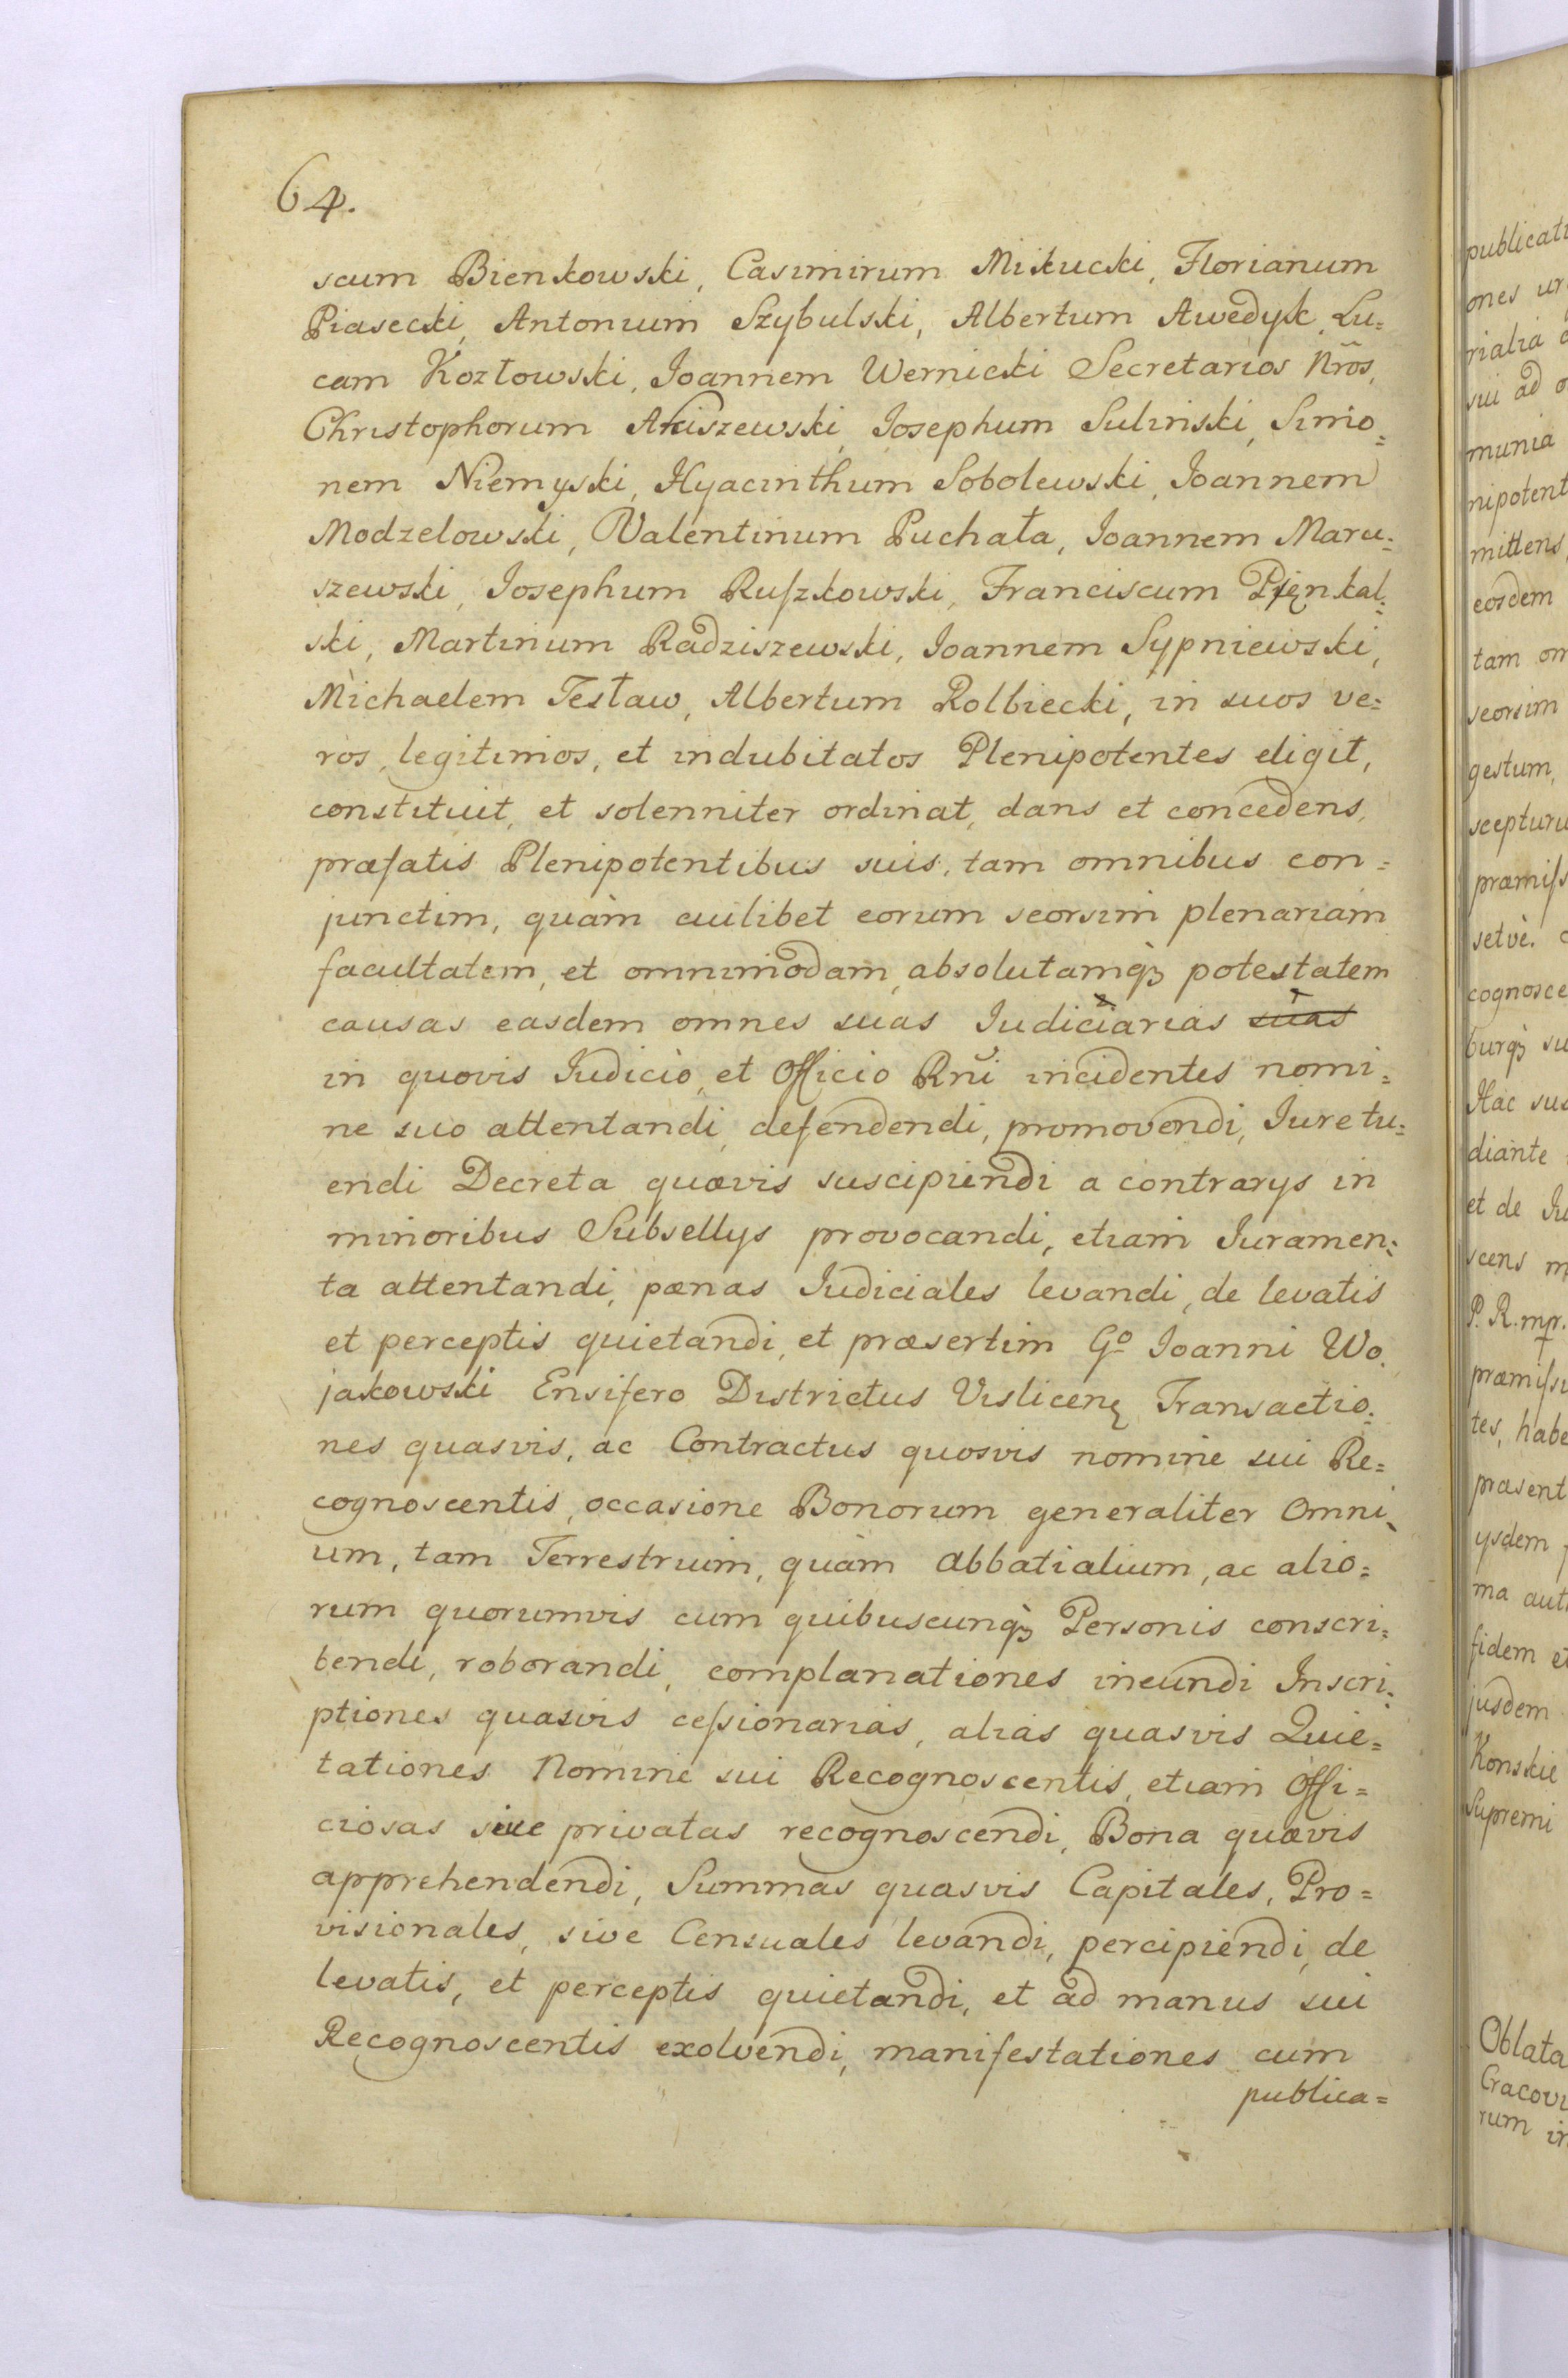 64.
scum Bienkowski, Casimirum Mikucki, Florianum
Piasecki, Antonium Szybulski, Albertum Awedyk, Lu=
cam Kozłowski, Joannem Wernicki Secretarios Nr̃os,
Christophorum Akiszewski, Josephum Suliński, Simo=
nem Niemyski, Hyacinthum Sobolewski, Joannem
Modzelowski, Valentinum Puchała, Joannem Maru=
szewski, Josephum Ruſzkowski, Franciscum Pienkal=
ski, Martinum Radziszewski, Joannem Sypniewski,
Michaelem Tesław, Albertum Rolbiecki, in suos ve=
ros, legitimos, et indubitatos Plenipotentes eligit,
constituit, et solenniter ordinat, dans et concedens,
præfatis Plenipotentibus suis, tam omnibus con=
junctim, quàm cuilibet eorum seorsim plenariam
facultatem, et omnimodam, absolutamqꝫ potestatem
causas easdem omnes suas Judiciarias suas
in quovis Judicio, et Officio Rñi incidentes nomi=
ne suo attentandi, defendendi, promovendi, Jure tu=
endi Decreta quævis suscipiendi a contrarys in
minoribus Subsellys provocandi, etiam Juramen=
ta attentandi, pænas Judiciales levandi, de levatis
et perceptis quietandi, et præsertim Gº Joanni Wo=
jakowski Ensifero Districtus Vislicenę Transactio=
nes quasvis, ac Contractus quosvis nomine sui Re=
cognoscentis, occasione Bonorum generaliter Omni=
um, tam Terrestrium, quàm abbatialium, ac alio=
rum quorumvis cum quibuscunqꝫ Personis conscri=
bendi, roborandi, complanationes ineundi Inscri=
ptiones quasvis ceſsionarias, alias quasvis Quie=
tationes Nomine sui Recognoscentis, etiam Offi=
ciosas sive privatas recognoscendi, Bona quævis
apprehendendi, Summas quasvis Capitales, Pro=
visionales, sive Censuales levandi, percipiendi, de
levatis, et perceptis quietandi, et ad manus sui
Recognoscentis exolvendi, manifestationes cum
publica=